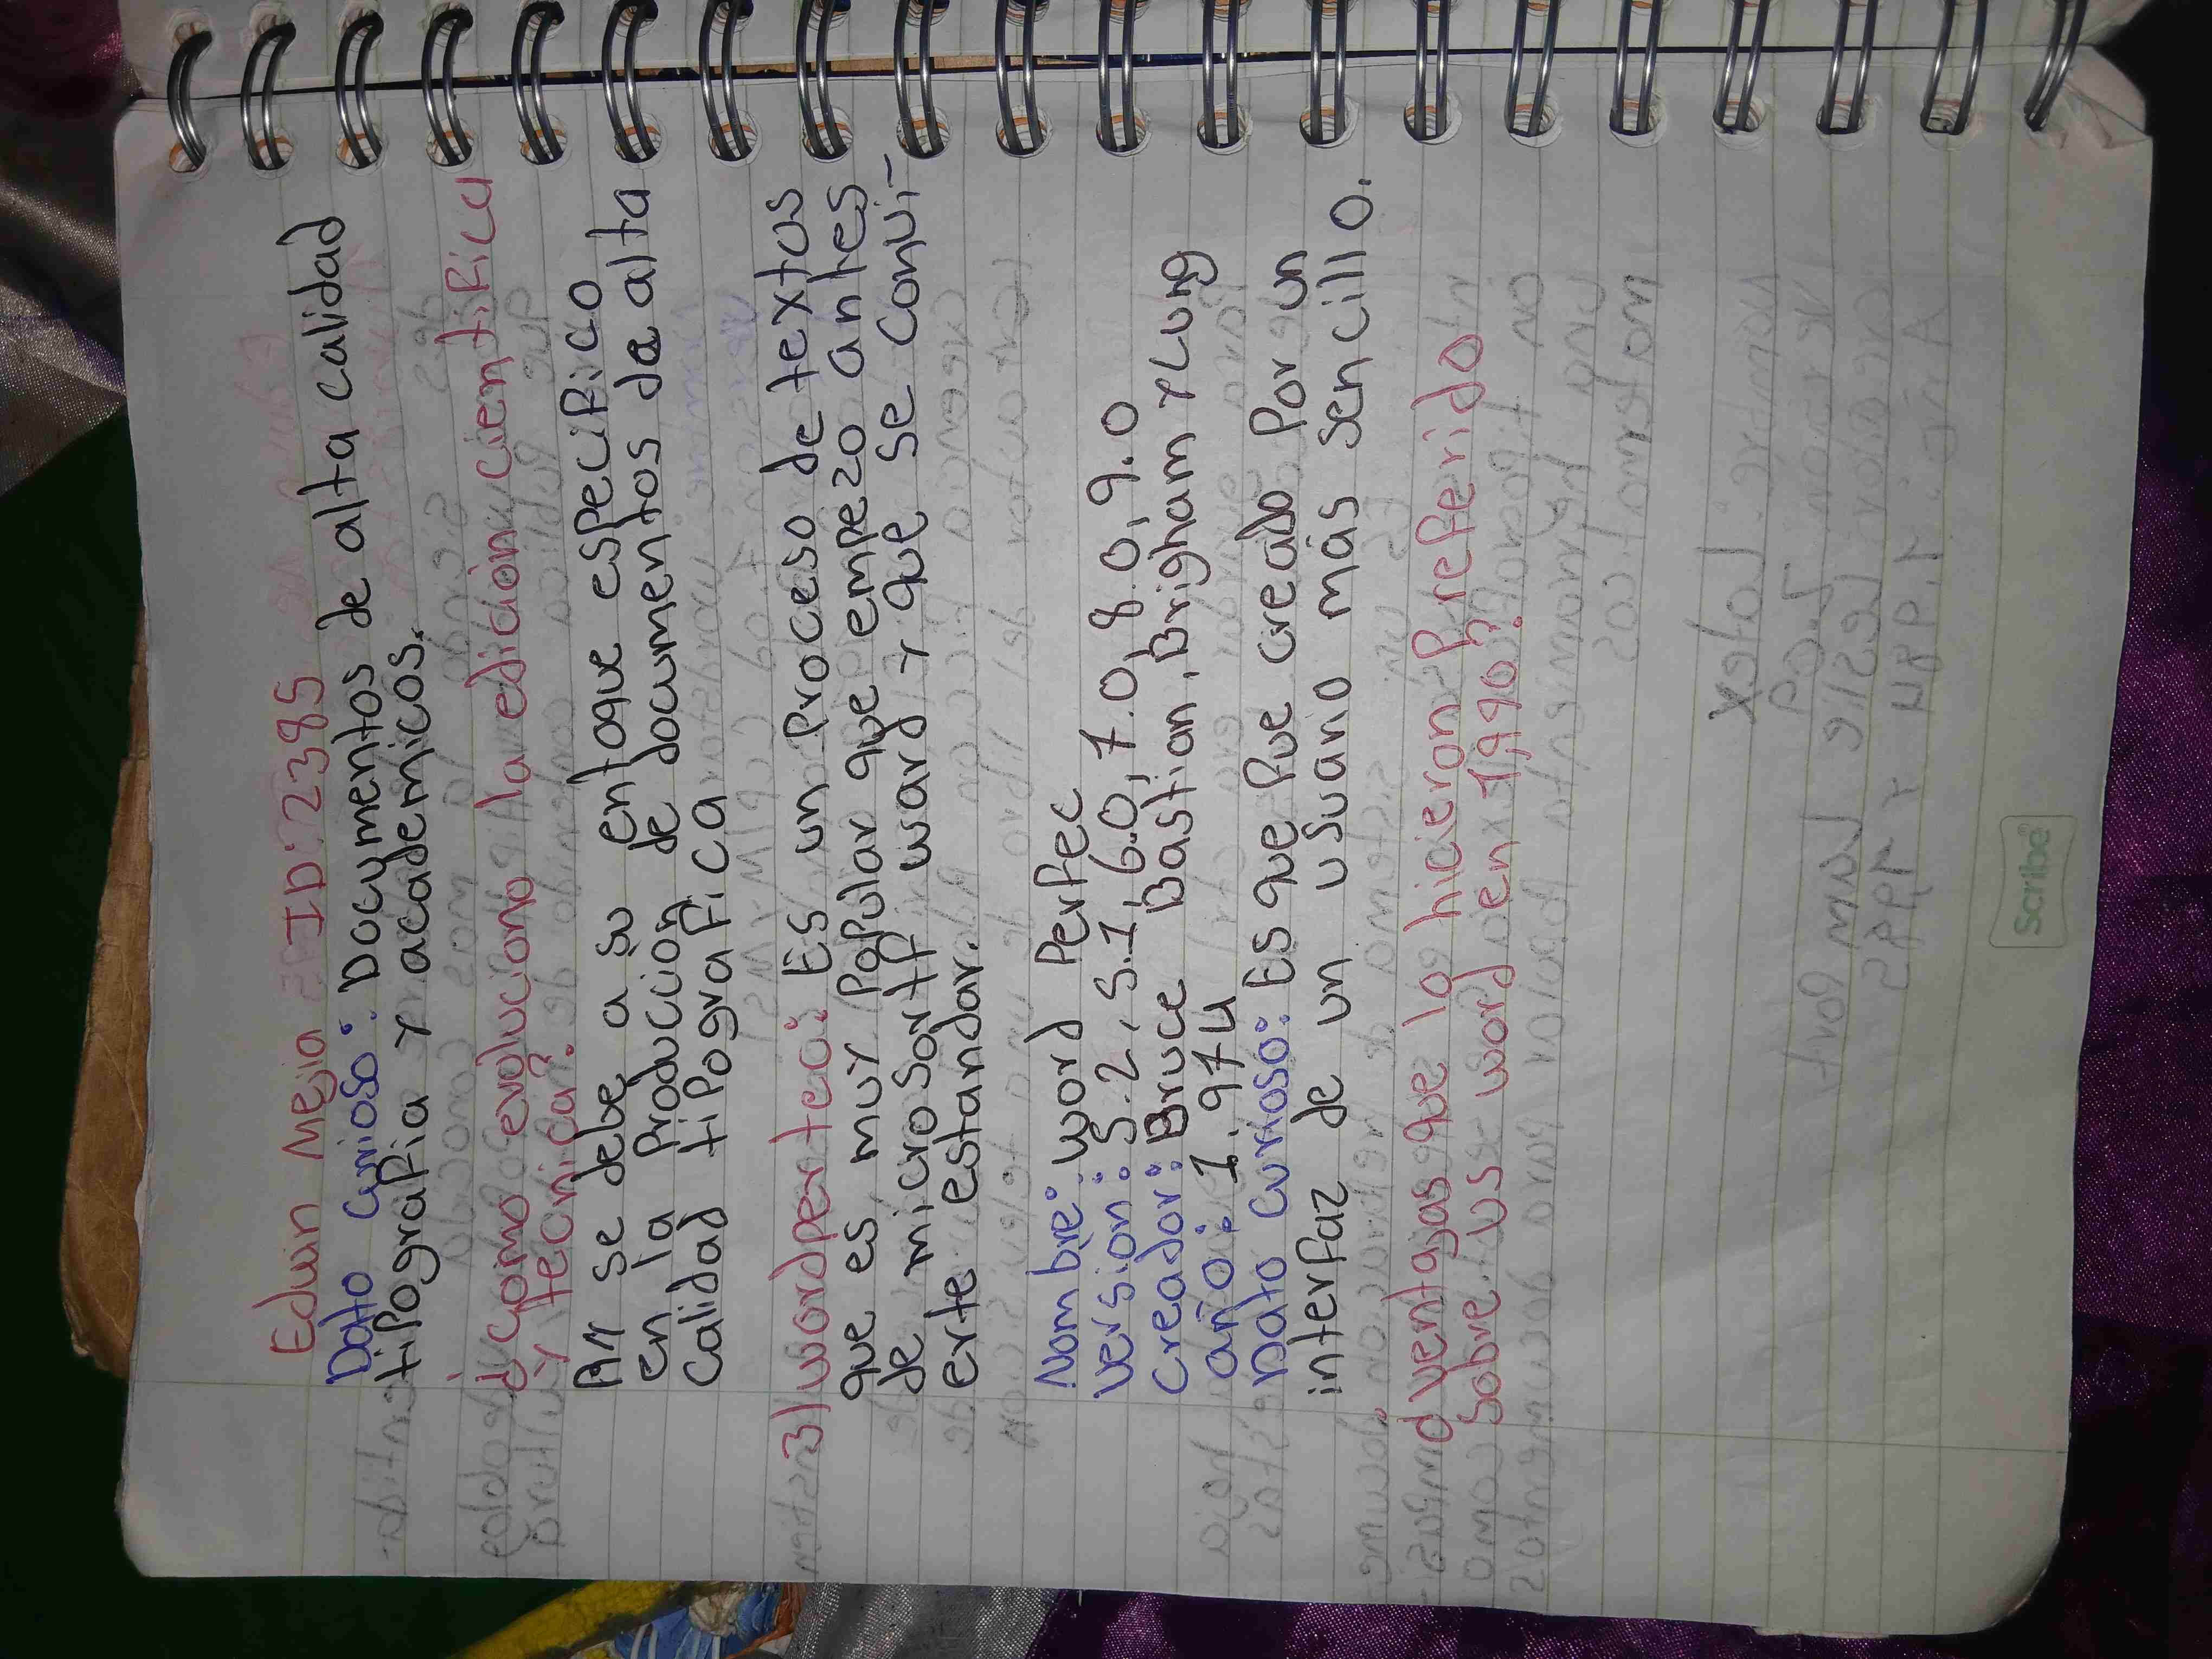 Edwin Mejia ID: 2385
Dato curioso: Documentos de alta calidad
tipografia y academicos.
¿como evoluciono la edición cientifica
y tecnica?
A// se debe a su enfoque especifico
en la producción de documentos da alta
calidad tipografica
3) wordperfect: Es un Proceso de textos
que es muy Popular que empezo antes
de microsortf ward y que se convi-
erte estandar.
Nombre: word Perfec
version: 5.2, 5.1, 6.0, 7.0, 8.0, 9.0
Creador: Bruce Bastian, Brigham yLung
año: 1.974
Dato curioso: Es que fue creado Por un
interfaz de un usuario más sencillo.
d ventajas que lo hicieron preferido
sobre us word en 1990?
Scribe